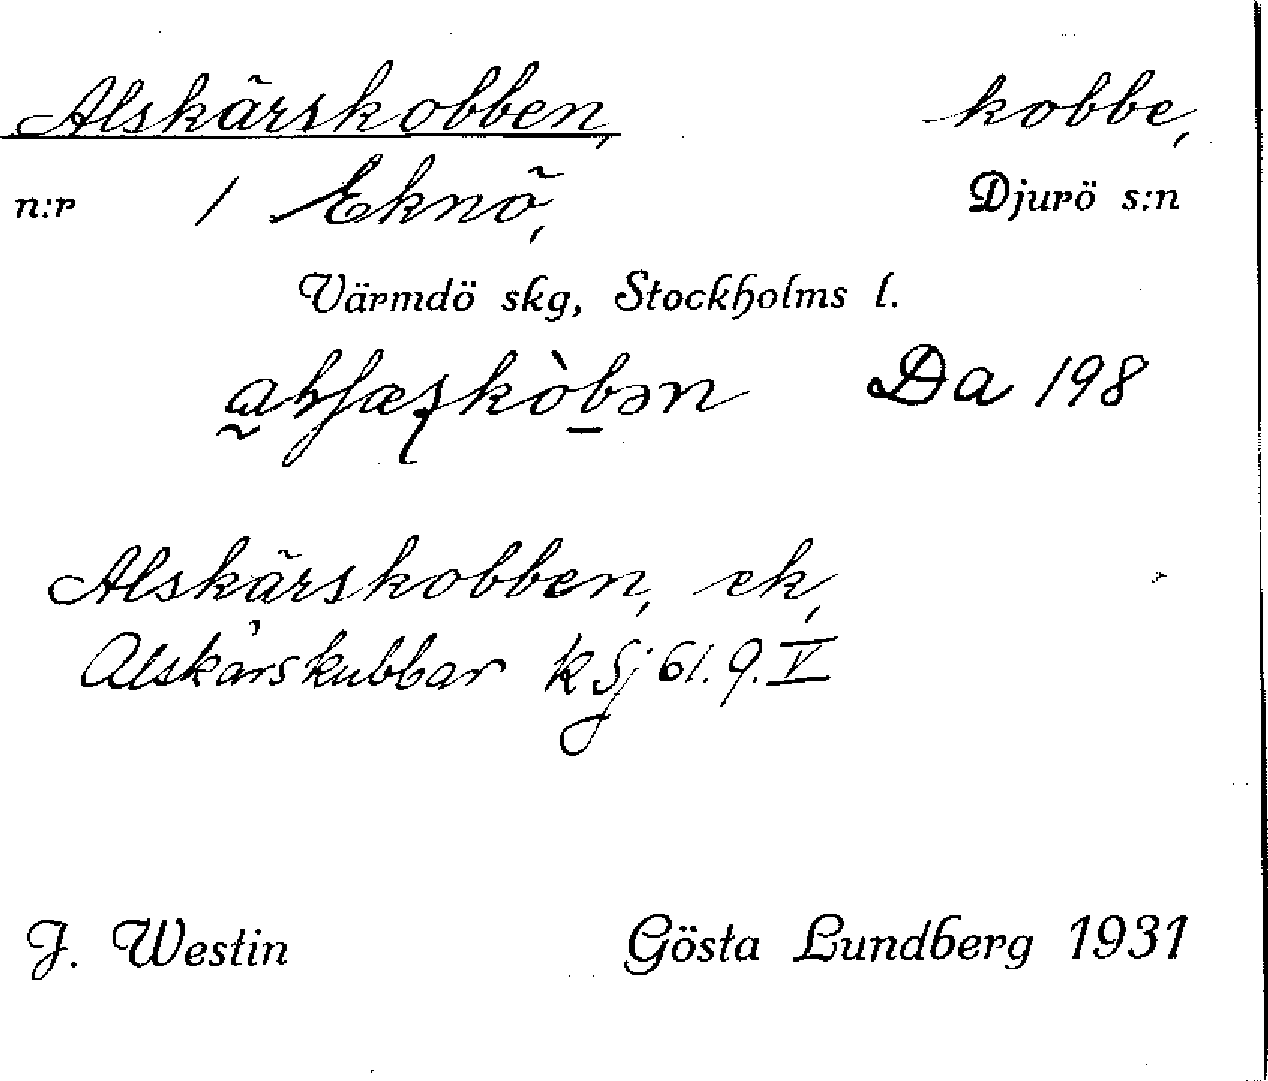 Alskärskobben, kobbe,
n:r 1 Eknö, Djurö s:n
Värmdö skg, Stockholms l.
Da 198
Alskärskobben, ek,
Alskärskubbar k Sj 61. 9. V
J. Westin Gösta Lundberg 1931